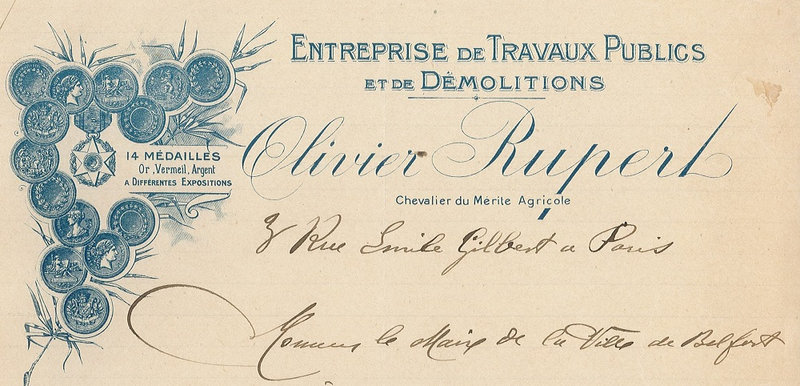 ENTREPRISE DE TRAVAUX PUBLICS
ET DE DÉMOLITIONS
Olivier Rupert
Chevalier du Mérite Agricole
14 MÉDAILLES
Or, Vermeil, Argent
A DIFFÉRENTES EXPOSITIONS
Rue Emile Gilbert a Paris
le Maire de la Ville de Belfort